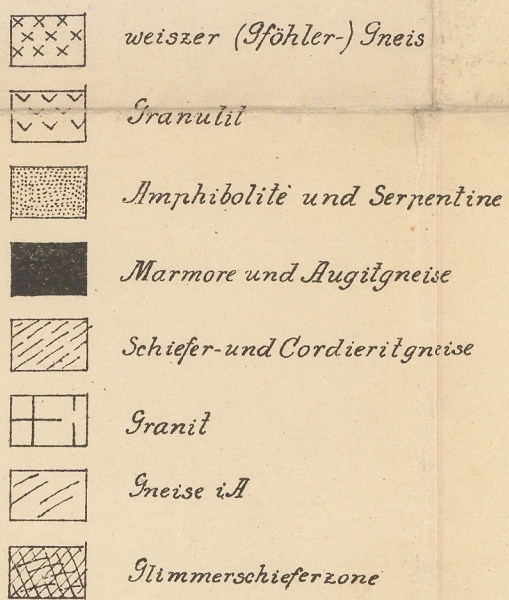 weiszer (Gföhler-) Gneis
Granulit
Amphibolite und Serpentine
Marmore und Augitgneise
Schiefer- und Cordieritgneise
Granit
Gneise i.A
Glimmerschieferzone